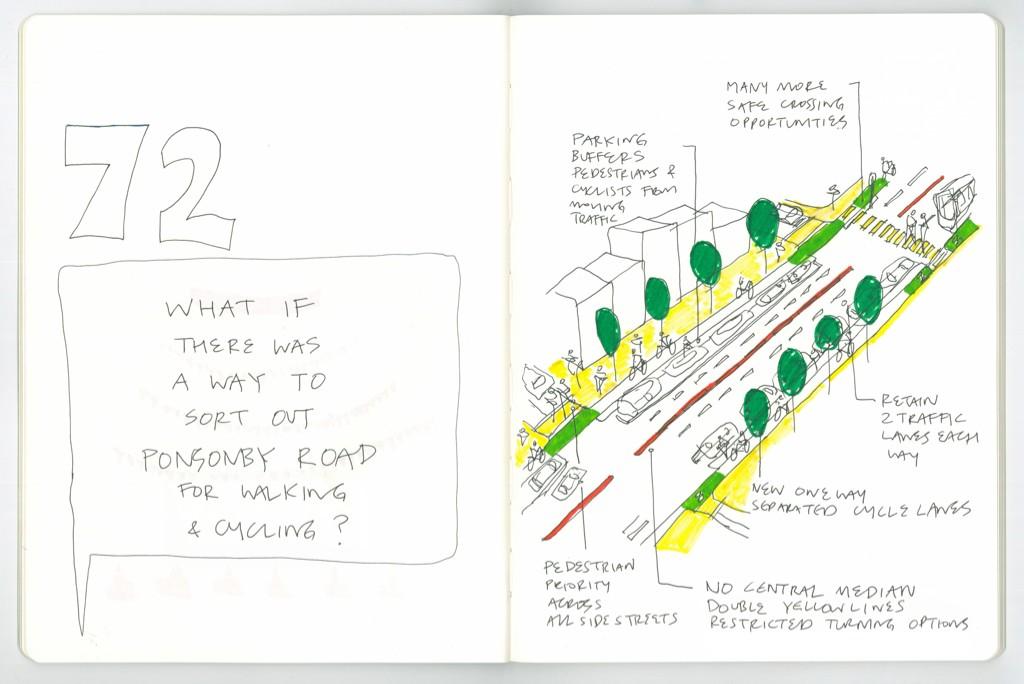 72
WHAT IF
THERE WAS
A WAY TO
SORT OUT
PONSONBY ROAD
FOR WALKING
& CYCLING?
MANY MORE
SAFE CROSSING
OPPORTUNITIES
PARKING
BUFFERS
PEDESTRIANS &
CYCLISTS FROM
MOVING
TRAFFIC
RETAIN
2 TRAFFIC
LANES EACH
WAY
NEW ONE WAY
SEPARATED CYCLE LANES
PEDESTRIAN
PRIORITY
ACROSS
ALL SIDE STREETS
NO CENTRAL MEDIAN
DOUBLE YELLOW LINES
RESTRICTED TURNING OPTIONS